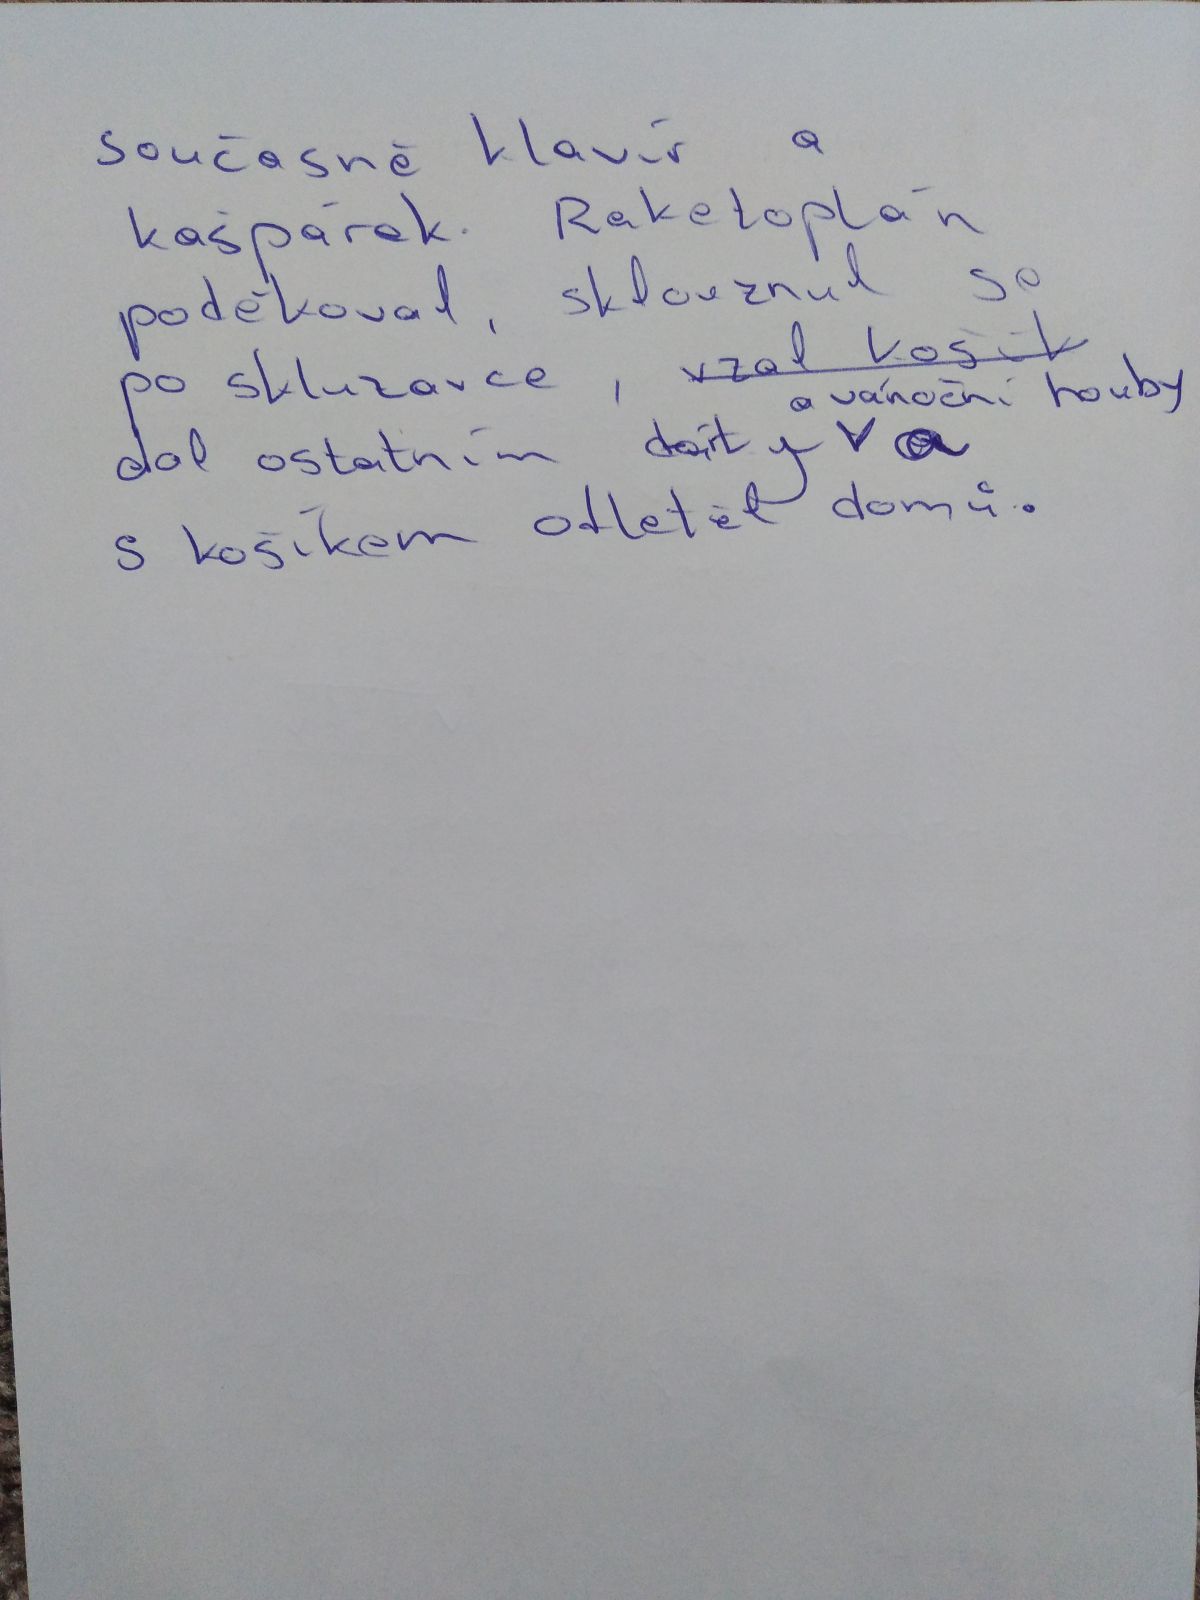 současně klavír a
kašpárek. Raketoplán
poděkoval, sklouznul se
po skluzavce, vzal košík
a vánoční houby
dal ostatním dárty a
s košíkem odletěl domů.